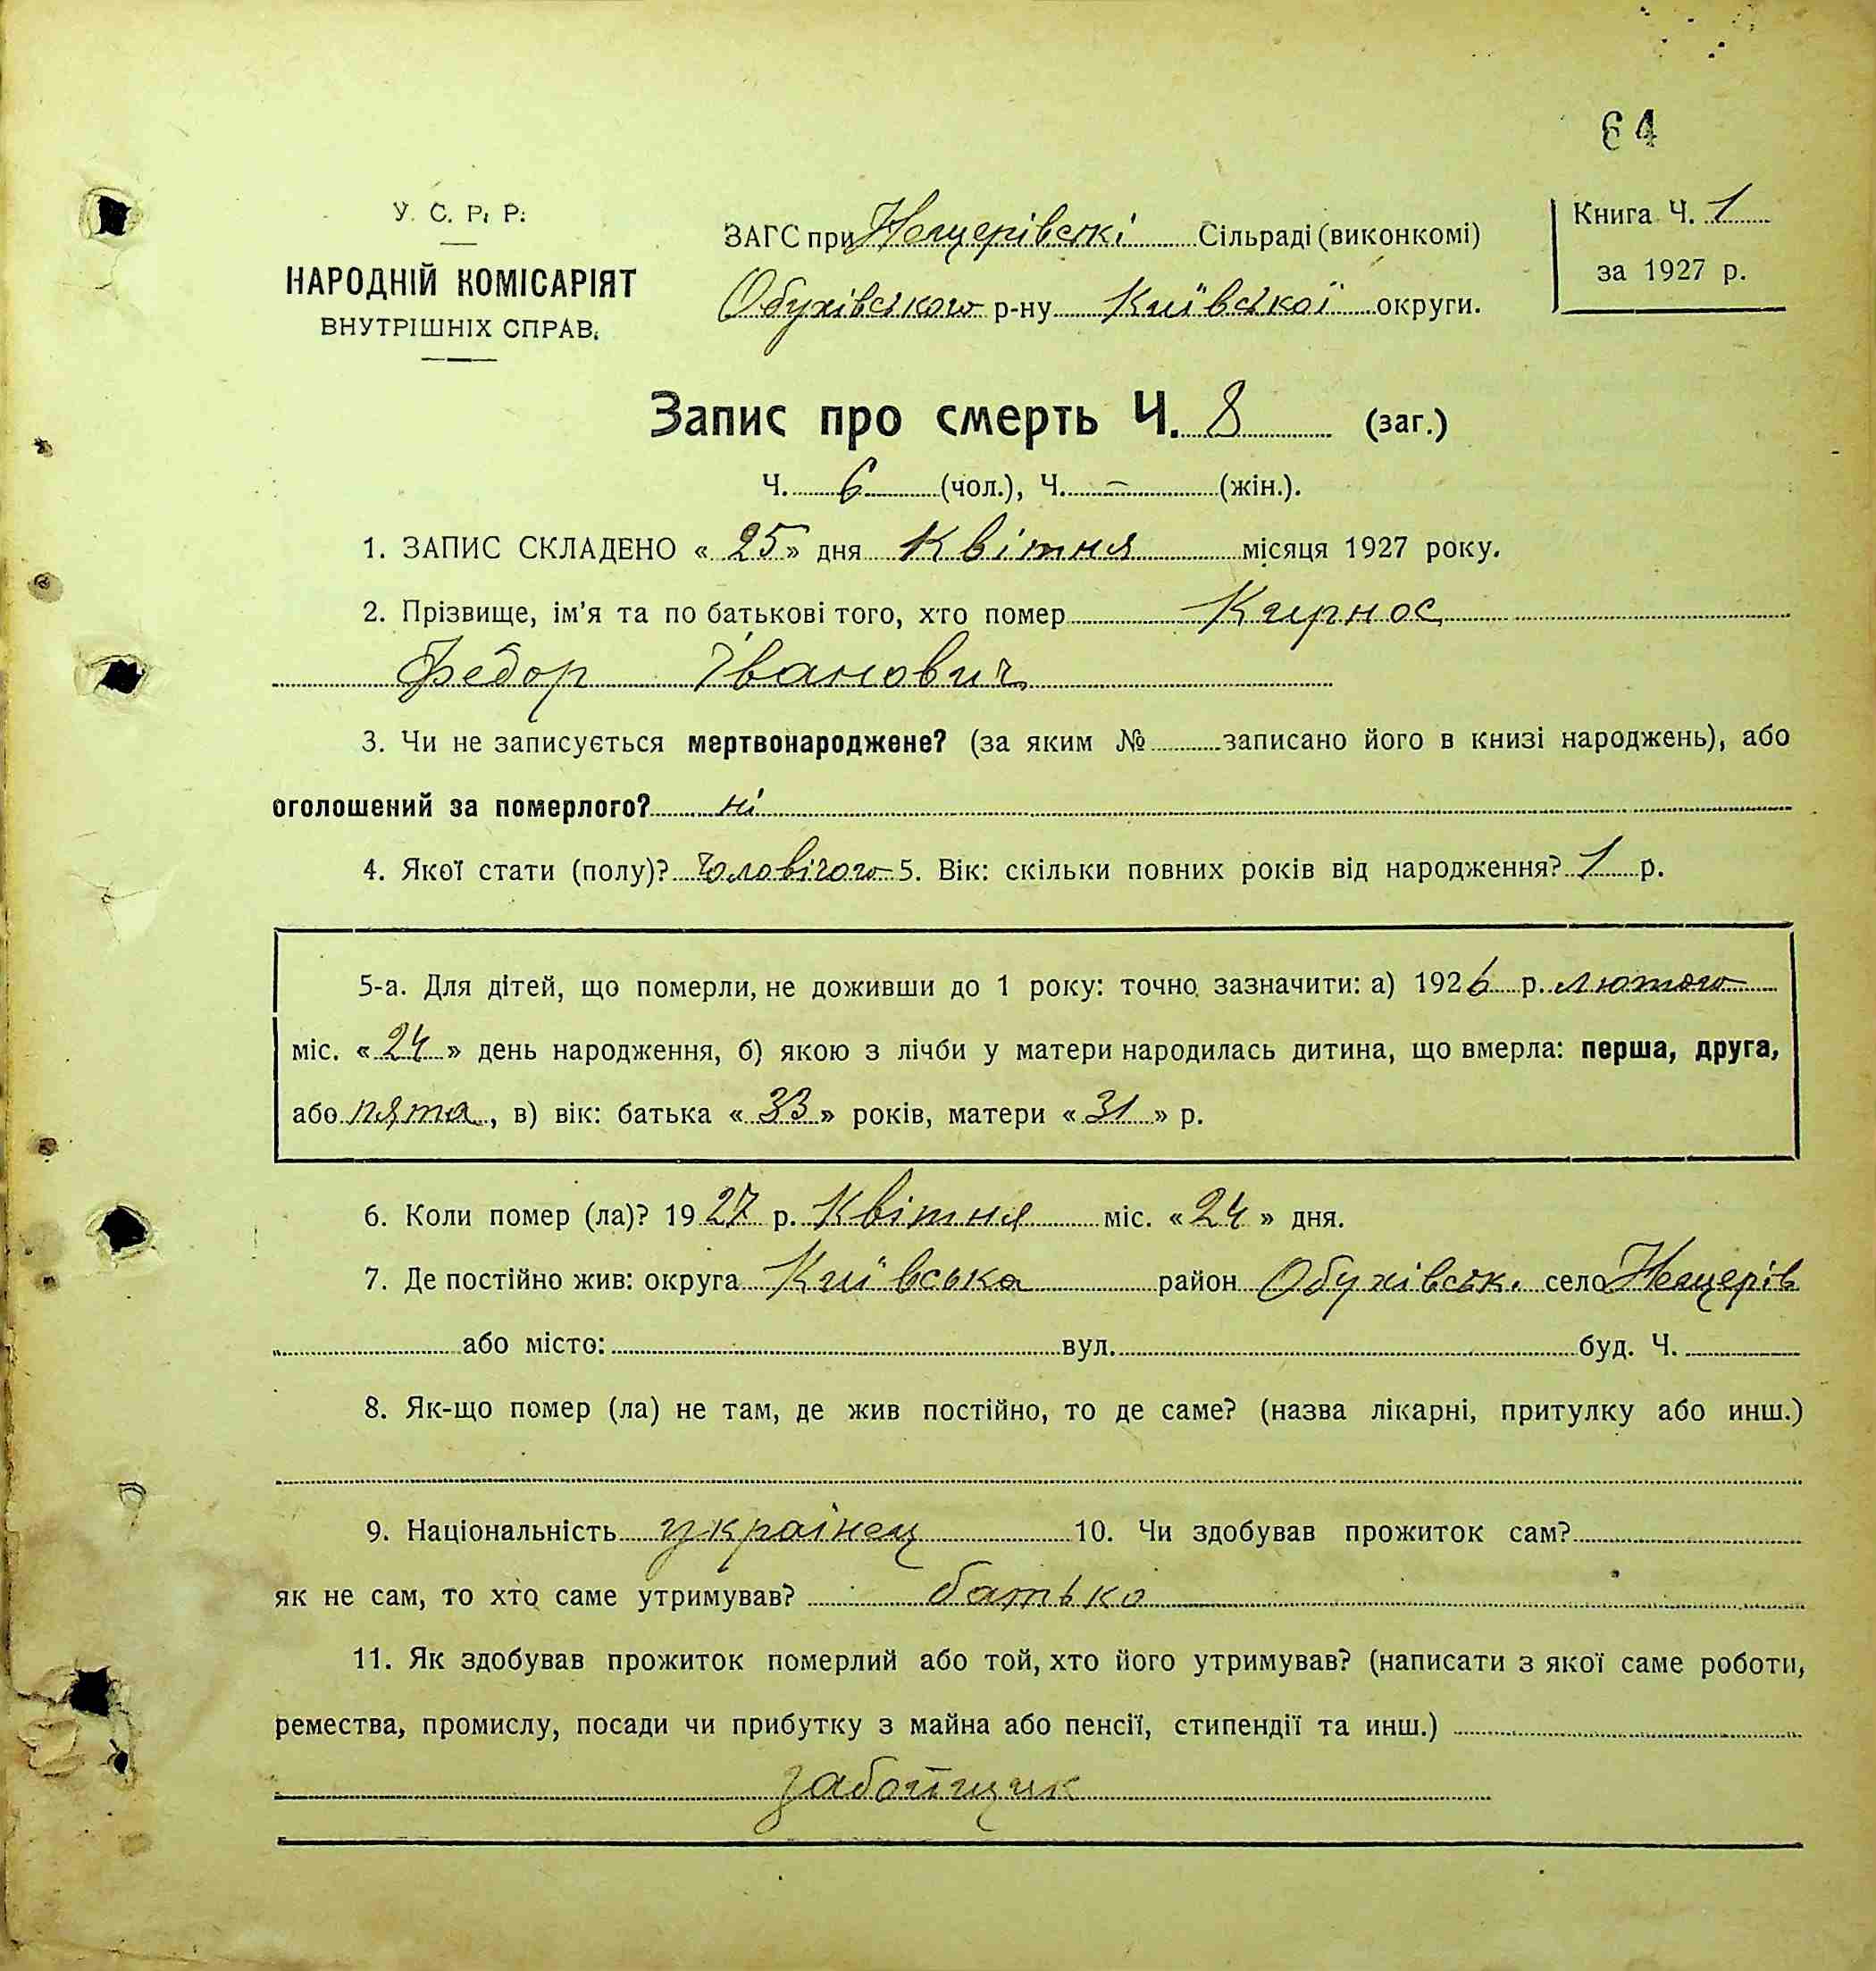 64
У. С. Р. Р.
НАРОДНІЙ КОМІСАРІЯТ
ВНУТРІШНІХ СПРАВ.
ЗАГС при Нещерівскі Сільраді (виконкомі)
Обухівського р-ну Київської округи.
Книга Ч. 1
за 1927 р.
Запис про смерть Ч. 8 (заг.)
Ч. 6 (чол.), Ч. – (жін.).
1. ЗАПИС СКЛАДЕНО « 25 » дня Квітня місяця 1927 року.
2. Прізвище, ім’я та по батькові того, хто помер Кирнос
Федор Іванович
3. Чи не записується мертвонароджене? (за яким № записано його в книзі народжень), або
оголошений за померлого? ні
4. Якої стати (полу)? Чоловічого 5. Вік: скільки повних років від народження? 1 р.
5-а. Для дітей, що померли, не доживши до 1 року: точно зазначити: а) 1926 р. лютого
міс. « 24 » день народження, б) якою з лічби у матери народилась дитина, що вмерла: перша, друга,
або пята, в) вік: батька « 33 » років, матери « 31 » р.
6. Коли помер (ла)? 1927 р. Квітня міс. « 24 » дня.
7. Де постійно жив: округа Київська район Обухівськ. село Нещерів
або місто: вул. буд. Ч.
8. Як-що помер (ла) не там, де жив постійно, то де саме? (назва лікарні, притулку або инш.)
9. Національність українец 10. Чи здобував прожиток сам?
як не сам, то хто саме утримував? батько
11. Як здобував прожиток померлий або той, хто його утримував? (написати з якої саме роботи,
ремества, промислу, посади чи прибутку з майна або пенсії, стипендії та инш.)
забойщик